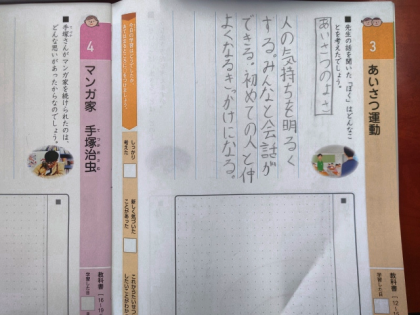 3
あいさつ運動
教科書
■先生の話を聞いた「ぼく」はどんなこ
とを考えたでしょう。
あいさつのよさ
人の気持ちを明るく
する。みんなと会話が
できる。初めての人と仲
よくなるきっかけになる。
■
しっかり
考えた
新しく気づいた
ことがあった
4
マンガ家 手塚治虫
教科書
■手塚さんがマンガ家を続けられたのは、
どんな思いがあったからなのでしょう。
■